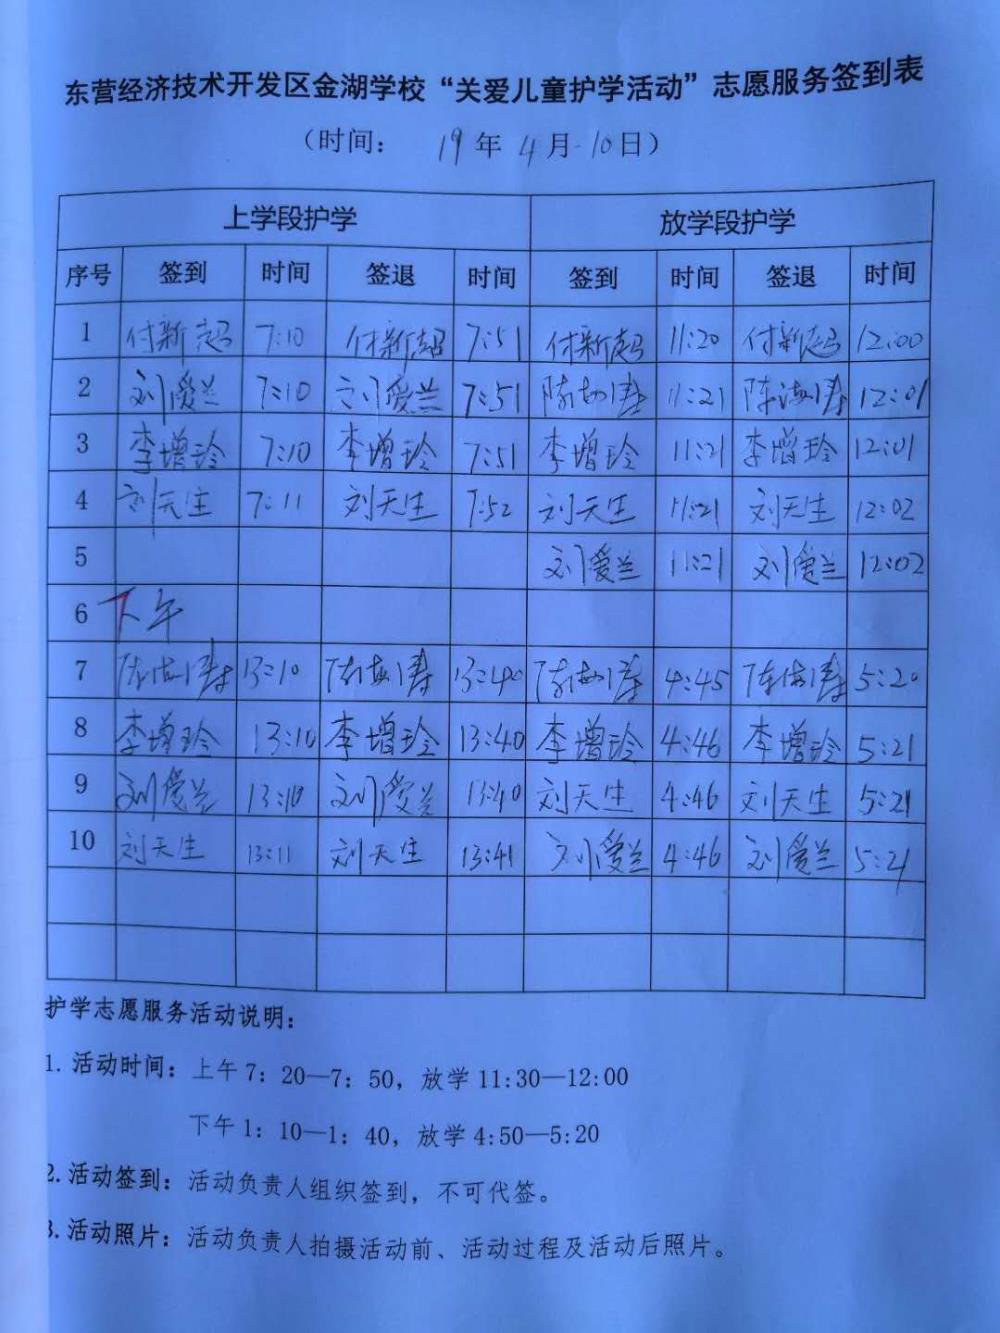 东营经济技术开发区金湖学校“关爱儿童护学活动”志愿服务签到表
（时间： 19年 4月 10日）
上学段护学 放学段护学
序号 签到 时间 签退 时间 签到 时间 签退 时间
1 付新超 7:10 付新超 7:51 付新超 11:20 付新超 12:00
2 刘爱兰 7:10 刘爱兰 7:51 陈海涛 11:21 陈海涛 12:01
3 李增玲 7:10 李增玲 7:51 李增玲 11:21 李增玲 12:01
4 刘天生 7:11 刘天生 7:52 刘天生 11:21 刘天生 12:02
5 刘爱兰 11:21 刘爱兰 12:02
6 下午
7 陈海涛 13:10 陈海涛 13:40 陈海涛 4:45 陈海涛 5:20
8 李增玲 13:10 李增玲 13:40 李增玲 4:46 李增玲 5:21
9 刘爱兰 13:10 刘爱兰 13:40 刘天生 4:46 刘天生 5:21
10 刘天生 13:11 刘天生 13:41 刘爱兰 4:46 刘爱兰 5:21
护学志愿服务活动说明：
1. 活动时间：上午 7：20—7：50，放学 11:30—12:00
下午 1：10—1：40，放学 4:50—5:20
2. 活动签到：活动负责人组织签到，不可代签。
3. 活动照片：活动负责人拍摄活动前、活动过程及活动后照片。